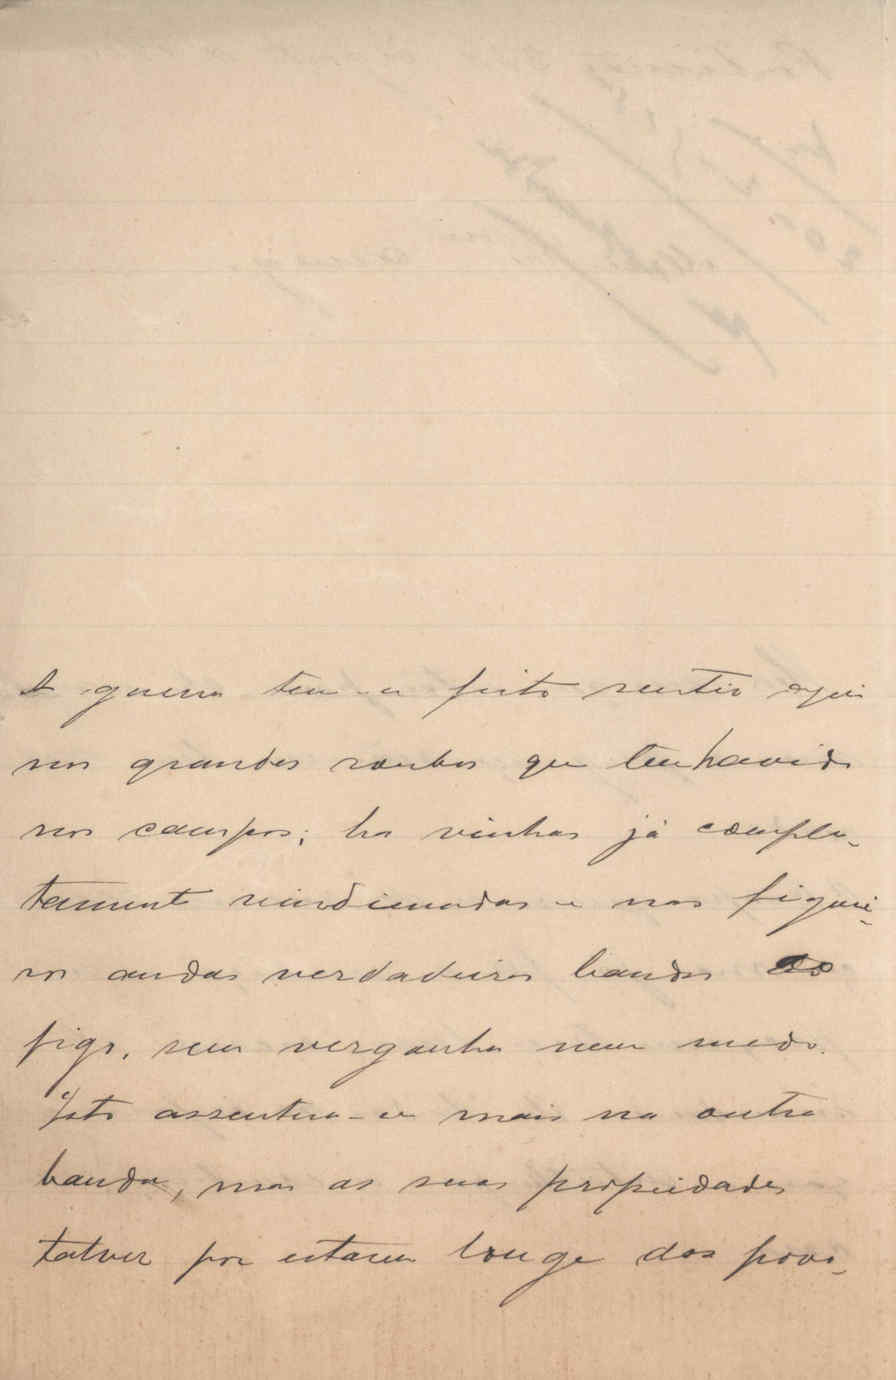 A guerra tem-se feito sentir aqui
nos grandes roubos que tem havido
nos campos; ha vinhas já comple-
tament vindimadas e nas figuei-
ras andas verdadeiros bandos ao
figo, sem vergonha nem medo.
Isto assentua-se mais na outra
banda, mas as suas propriedades
talvez por estarem longe dos povo-